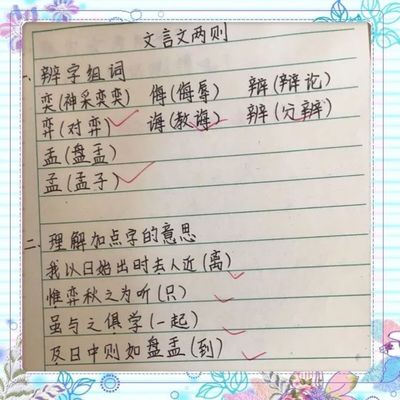 文言文两则
一、辨字组词
奕(神采奕奕) 侮(侮辱) 辩(辩论)
弈(对弈) 诲(教诲) 辨(分辨)
盂(盘盂)
孟(孟子)
二、理解加点字的意思
我以日始出时去人近(离)
惟弈秋之为听(只)
虽与之俱学(一起)
及日中则如盘盂(到)